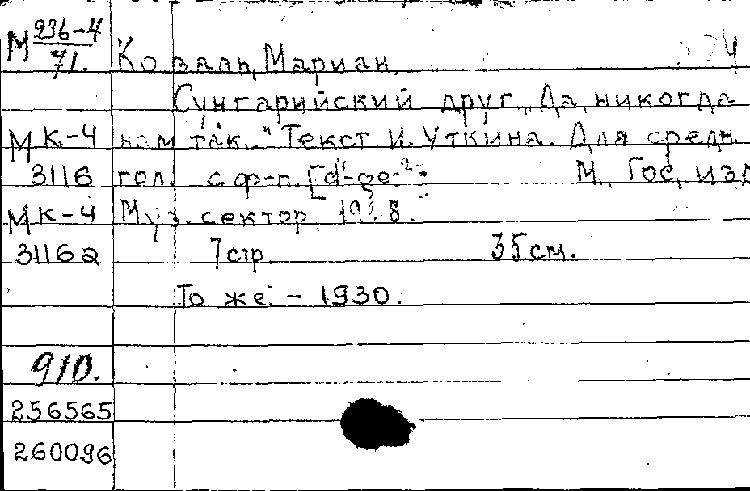 М 236-4/71. Коваль, Мариан.
Сунгарийский друг. „Да, никогда
М К-4 нам так..." Текст И. Уткина. Для средн.
3116 гол. с ф-п. [d¹-ges²] М., Гос. изд.
М К-4 Муз. сектор,
3116а 7 стр. 35 см.
То же. - 1930.
910.
256565
260096